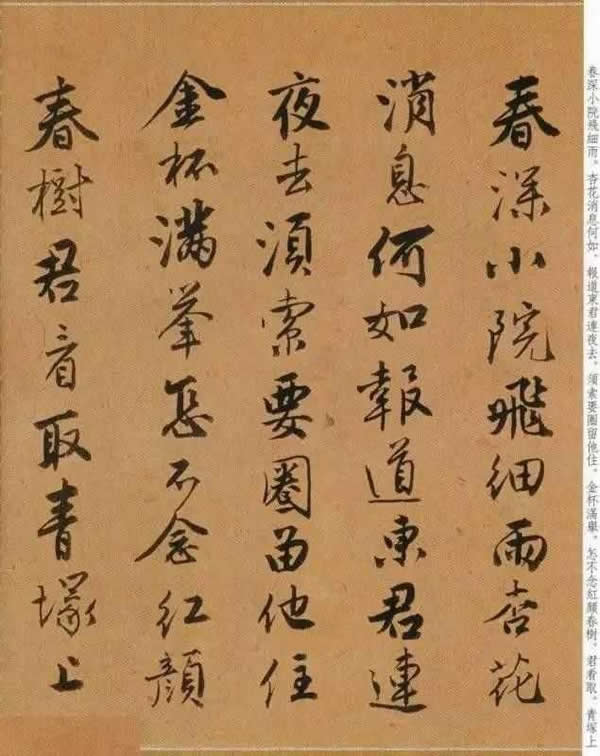 春深小院飛細雨杏花
消息何如報道東君連
夜去須索要圈留他住
金杯滿舉怎不念紅顏
春樹君看取青塚上
春深小院飛細雨。杏花消息何如。報道東君連夜去。須索要圈留他住。金杯滿舉。怎不念紅顏春樹。君看取。青塚上